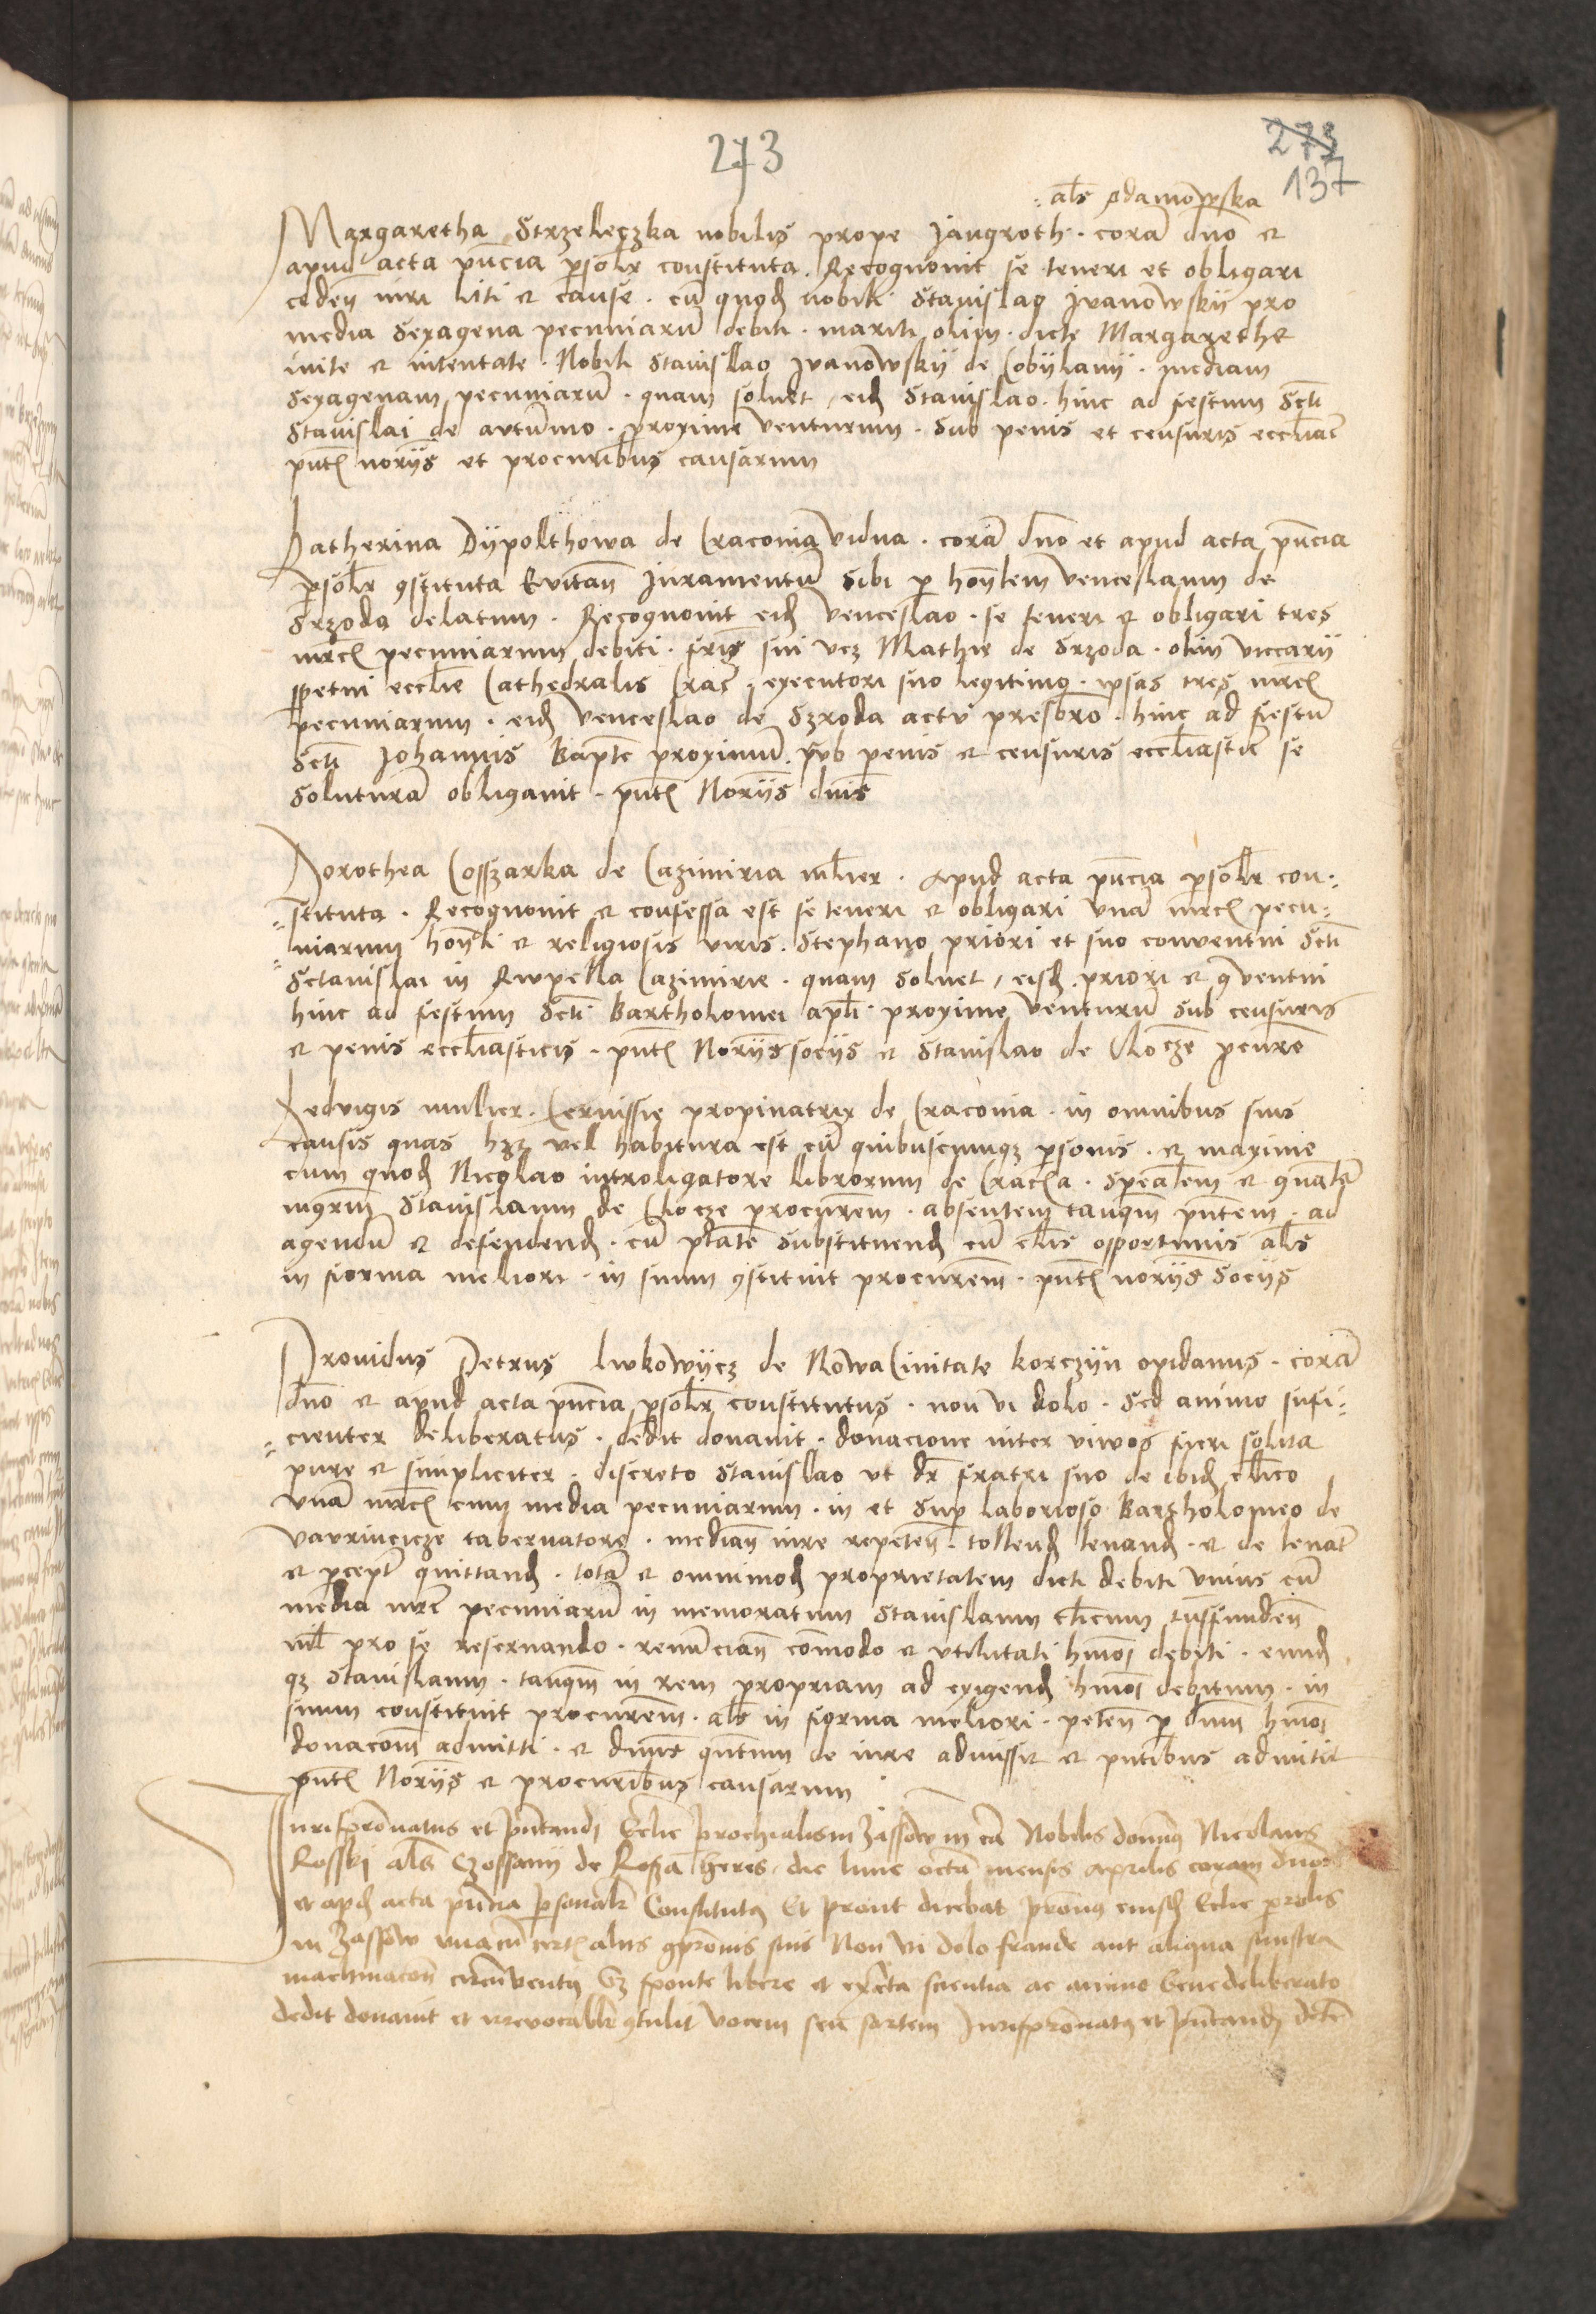 273
273
137
als Adamowska
Margaretha Strzeleczka nobilis prope Jangroth . corã dno et
apud acta pñcia psolr constituta . Recognovit se teneri et obligari
ceden iuri liti et cause . cũ quod nobili Stanislao Ivanowskÿ pro
media sexagena pecuniarũ debiti . mariti olim . dicte Margarethe
inite et intentate . Nobili Stanislao Ivanowskÿ de Cobÿlanÿ . mediam
sexagenam pecuniarũ . quam solvet , eid Stanislao . hinc ad festum Scti
Stanislai de autumno . proxime venturum . sub penis et censuris eccliac
pñt noriis et procuribus causarum
Katherina Dÿpolthowa de Cracovia vidua . corã dno et apud acta pñcia
psolr gstituta Evitan Iuramentũ sibi p honlem venceslaum de
Srzoda delatum . Recognovit eid venceslao . se teneri et obligari tres
mrc pecuniarum debiti . fris sui vcz Mathie de Srzoda . olim viccarÿ
ppetui ecclie Cathedralis Crac . executori suo legitimo . ipsas tres mrc
pecuniarum . eid venceslao de Szroda actu presbro . hinc ad festũ
Scti Johannis Bapte proximũ . sub penis et censuris eccliastic se
soluturã obligavit . pñt Noriis dnis
Dorothea Cosszarka de Cazimiria mlier . Apud acta pñcia psolr con-
stituta . Recognovit et confessa est se teneri et obligari unã mrc pecu-
niarum honli et religiosis viris . Stephano priori et suo conventui Scti
Sctanislai in Rwpella Cazimirie . quam solvet , eisd . priori et gventui
hinc ad festum Scti Bartholomei apli . proxime venturũ sub censuris
et penis eccliasticis . pñt Noriis sociis et Stanislao de Clocze pcure
Hedvigis mulier . Cervissie propinatrix de Cracovia . in omnibus suis
causis quas hz vel habitura est cũ quibuscumqz psonis . et maxime
cum quod Nicolao introligatore librorum de Cracia . Specialem et gnalem
mgrm Stanislaum de Clocze procurem . absentem tanqm pñtem . ad
agendũ et defendend . cũ ptate substituend cũ clis opportunis als
in forma meliori . in suum gstituit procurem . pñt noriis sociis
Providus Petrus Lwkowÿcz de Nowa Civitate korczÿn opidanus . corã
dno et apud acta pñcia psolr constitutus . non vi dolo . sed animo sufi-
cienter deliberatus . dedit donavit . donacione inter vivos fieri solita
pure et simpliciter . discreto Stanislao ut dr fratri suo de ibid clico
unã mrc cum media pecuniarum . in et sup laborioso Bartholomeo de
vavrincicze tabernatore . median iure repeten . tollend levand . et de levat
et pcept quittand . totã et omnimod proprietatem dicti debiti unius cũ
media mrc pecuniarũ in memoratum Stanislaum clicum tnsfunden
nil pro se reservando . renuncian comodo et utilitati hmoi debiti . eund
qz Stanislaum . tanqm in rem propriam ad exigend hmoi debitum . in
suum constituit procurem . als in forma meliori . peten p dnm hmoi
donacom admitti . et dnus qntum de iure admissit et pntibus admitit
pñt Noriis et procuribus causarum
Jurispronatus et pñtandi Eclie prochialis in Zassow in ea Nobilis domnus Nicolaus
Rosski als Czossnÿ de Rosza heres . die lune octa mensis Aprilis coram dno
et apd acta pñcia psonalr Constitutus Et prout dicebat pronus eiusd Eclie prolis
in Zassow unacũ cert aliis gpronis suis Non vi dolo fraude aut aliqua sinistra
machinacon circũventus Sz sponte libere et ex certa scientia ac animo bene deliberato
dedit donavit et irrevocablr gtulit vocem seu sortem Jurispronatus et pñtandi dcte